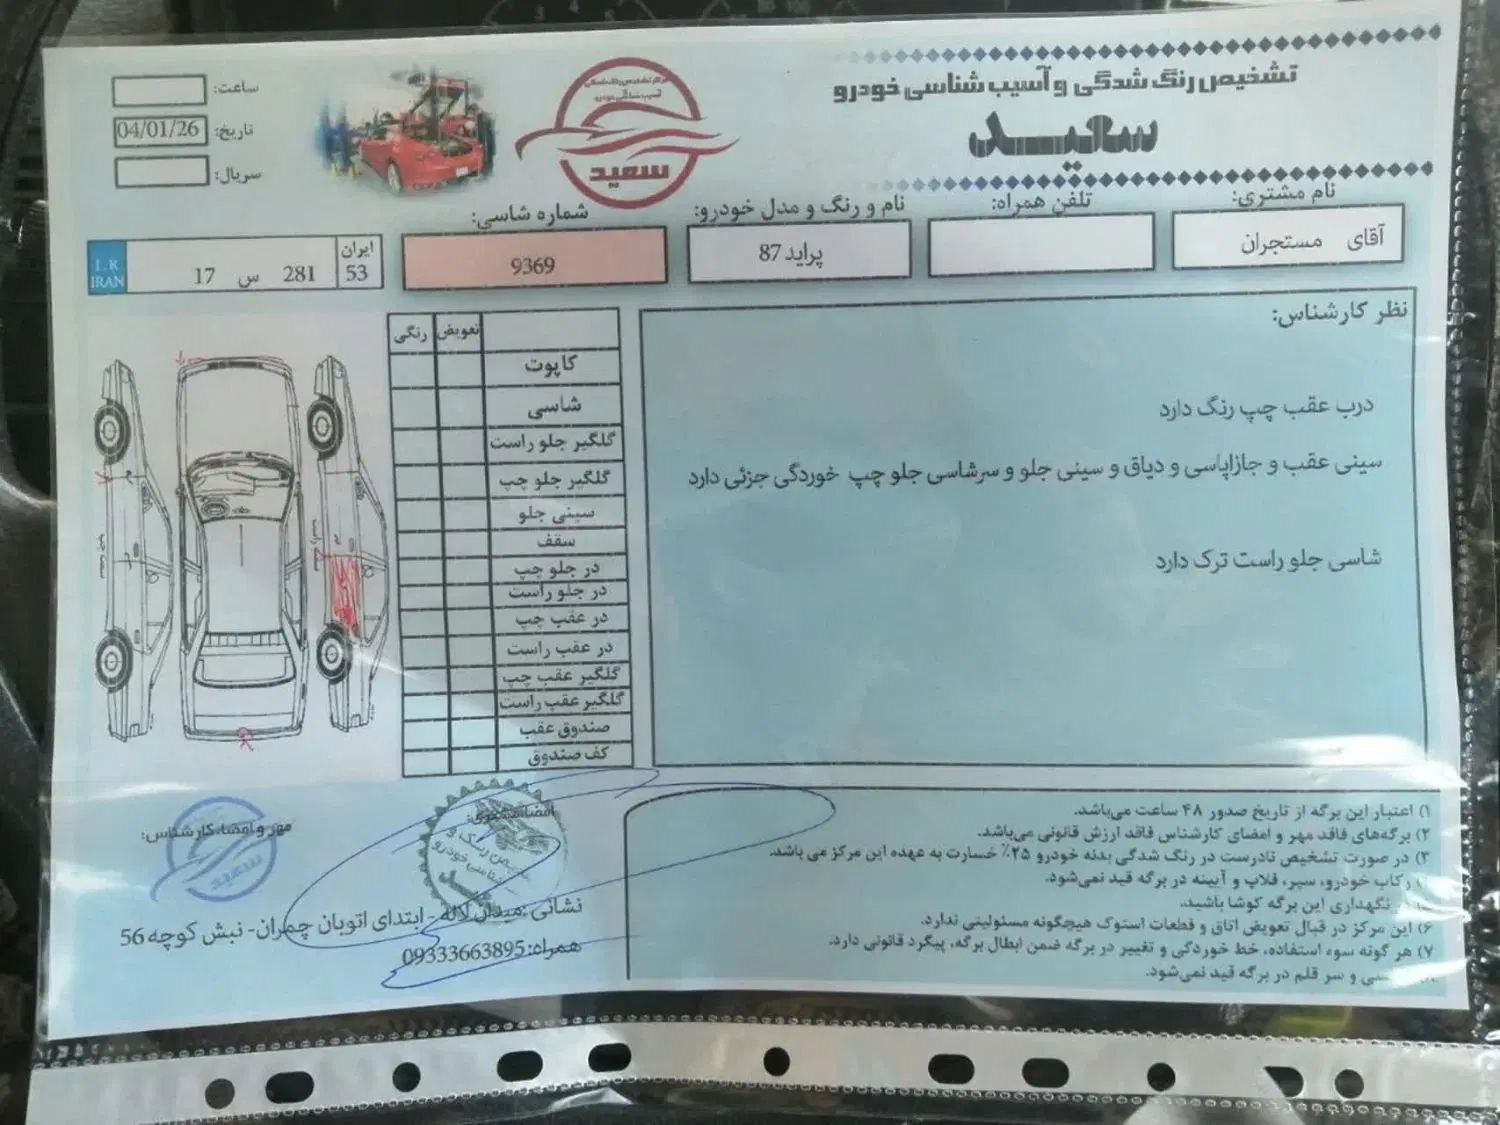 تشخیص رنگ شدگی و آسیب شناسی خودرو
سعید
سعید
ساعت:
تاریخ: 04/01/26
سریال:
نام مشتری:
آقای مستجران
تلفن همراه:
نام و رنگ و مدل خودرو:
پراید 87
شماره شاسی:
9369
ایران
53
281 س 17
I.R
IRAN
نظر کارشناس:
درب عقب چپ رنگ دارد
سینی عقب و جازاپاسی و دیاق و سینی جلو و سرشاسی جلو چپ خوردگی جزئی دارد
شاسی جلو راست ترک دارد
تعویض رنگی
کاپوت
شاسی
گلگیر جلو راست
گلگیر جلو چپ
سینی جلو
سقف
در جلو چپ
در جلو راست
در عقب چپ
در عقب راست
گلگیر عقب چپ
گلگیر عقب راست
صندوق عقب
کف صندوق
۱) اعتبار این برگه از تاریخ صدور ۴۸ ساعت می‌باشد.
۲) برگه‌های فاقد مهر و امضای کارشناس فاقد ارزش قانونی می‌باشد.
۳) در صورت تشخیص نادرست در رنگ شدگی بدنه خودرو ۲۵٪ خسارت به عهده این مرکز می باشد.
رکاب خودرو، سپر، قلاب و آیینه در برگه قید نمی‌شود.
در نگهداری این برگه کوشا باشید.
۶) این مرکز در قبال تعویض اتاق و قطعات استوک هیچگونه مسئولیتی ندارد.
۷) هر گونه سوء استفاده، خط خوردگی و تغییر در برگه ضمن ابطال برگه، پیگرد قانونی دارد.
و سر قلم در برگه قید نمی‌شود.
امضاء مشتری:
مهر و امضاء کارشناس:
سعید
نشانی: میدان لاله - ابتدای اتوبان چمران- نبش کوچه 56
همراه: 09333663895